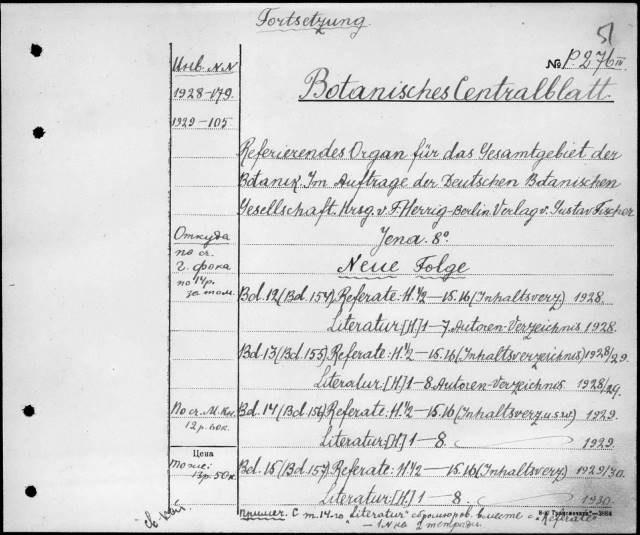 Fortsetzung
51
№ P276 IV
Инв. N.N
Botanisches Centralblatt.
1928-179.
1929-105
Referierendes Organ für das Gesamtgebiet der
Botanik. Im Auftrage der Deutschen Botanischen
Gesellschaft. Hrsg. v. F. Herrig-Berlin. Verlag v. Gustav Fischer
Откуда
Jena. 8°.
по сч.
г. Фока
Neue Folge
по 14 р.
за том.
Bd. 12 (Bd. 154) Referate: H. 1/2 - 15.16 (Inhaltsverz) 1928.
Literatur: [H] 1-7. Autoren-Verzeichnis. 1928.
Bd. 13 (Bd. 155) Referate: H. 1/2 - 15.16 (Inhaltsverzeichnis) 1928/29.
Literatur: [H] 1-8. Autoren-Verzeichnis 1928/29.
По сч. М.Кн.
12 р. 60к.
Bd. 14 (Bd. 156) Referate: H. 1/2 - 15.16 (Inhaltsverz usw.) 1929.
Literatur: [H] 1-8. 1929.
Цена
то же:
13 р. 50к.
Bd. 15 (Bd. 157) Referate: H. 1/2 - 15.16 (Inhaltsverz) 1929/30.
Literatur: [H] 1-8. 1930.
Примеч. С т. 14-го "Literatur" сброшюров. вместе с "Referate"
- 1 N на 2 тетради.